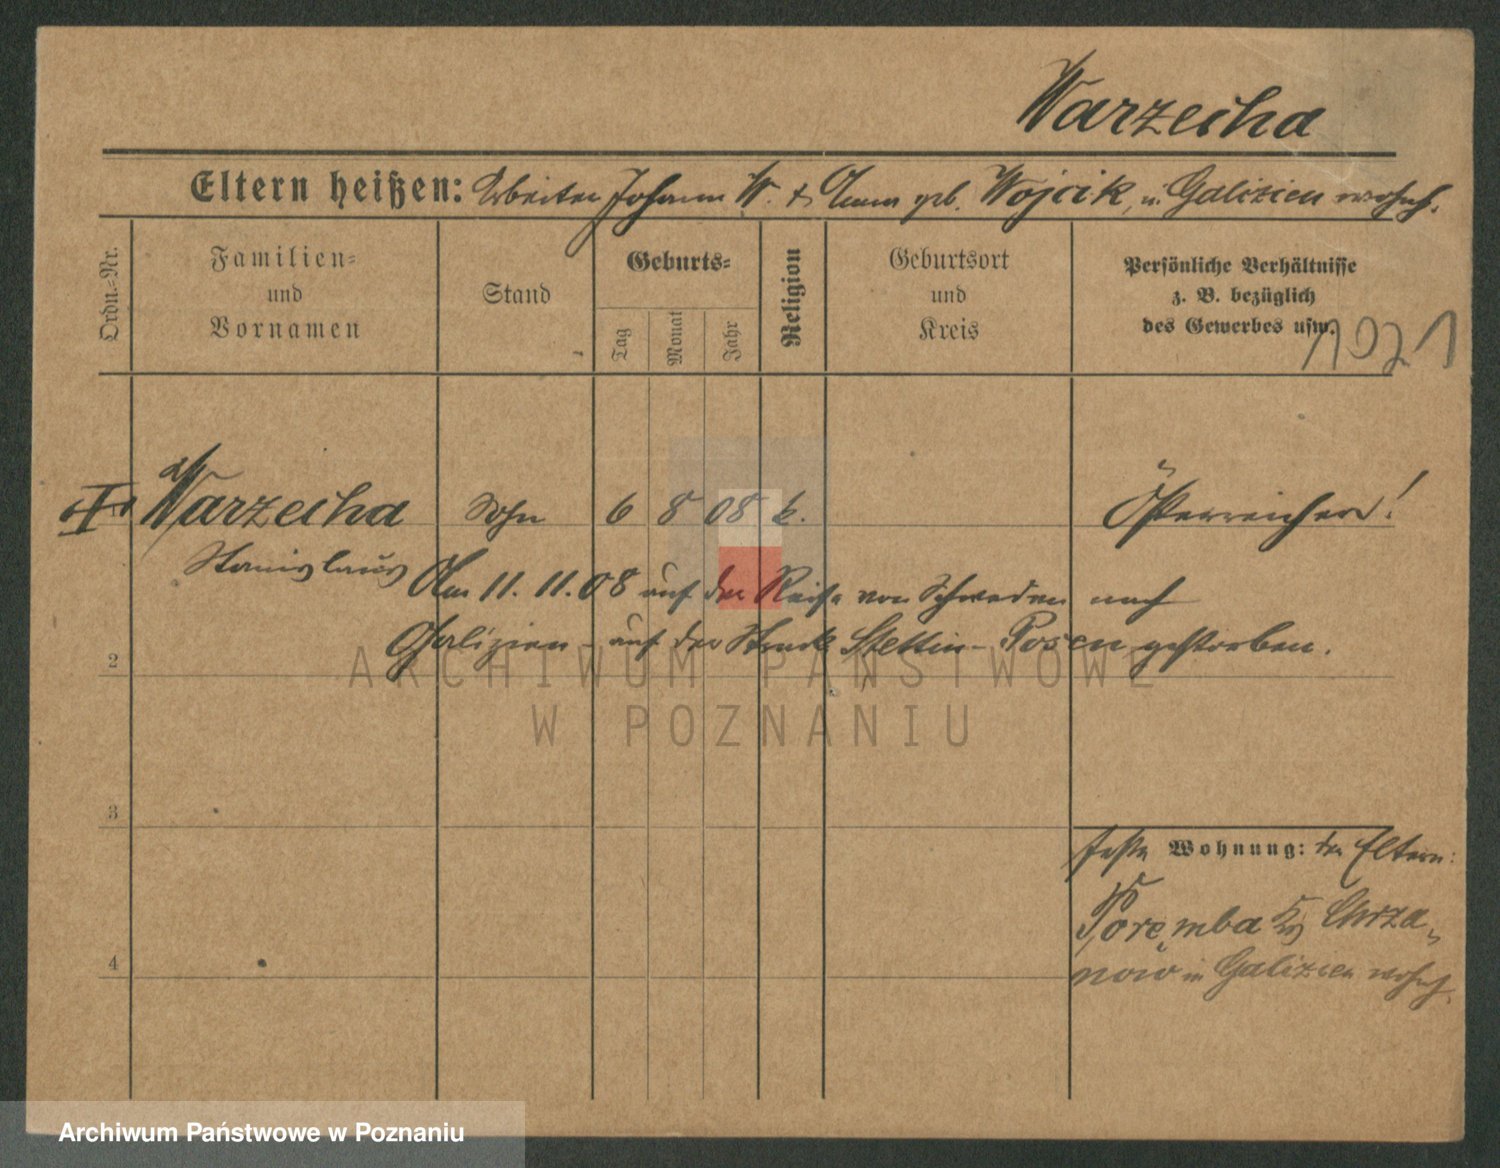 Warzecha
Eltern heißen: Arbeiter Johann W. & Anna geb. Wojcik, in Galizien wohnh.
Ordn.-Nr.
Familien-
und
Vornamen
Stand
Geburts-
Tag
Monat
Jahr
Religion
Geburtsort
und
Kreis
Persönliche Verhältnisse
z. B. bezüglich
des Gewerbes usw.
Warzecha Sohn 6 8 08 k. Österreicher!
Stanislaus
Am 11. 11. 08 auf der Reise von Schweden nach
Galizien - auf der Strecke Stettin - Posen gestorben.
2
3
feste Wohnung: der Eltern:
Poremba Chrza-
4
now in Galizien wohnh.
ARCHIWUM PAŃSTWOWE
W POZNANIU
Archiwum Państwowe w Poznaniu